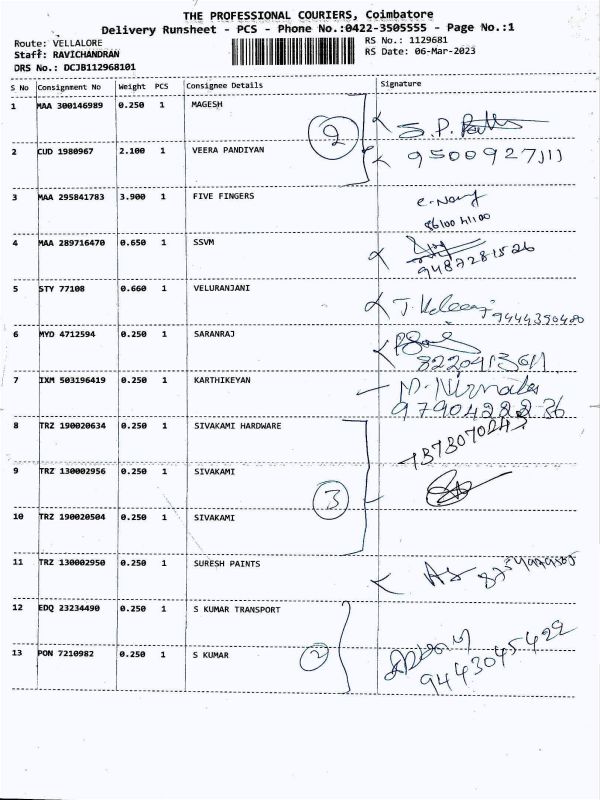 THE PROFESSIONAL COURIERS, Coimbatore
Delivery Runsheet - PCS - Phone No.:0422-3505555 - Page No.:1
Route: VELLALORE RS No.: 1129681
Staff: RAVICHANDRAN RS Date: 06-Mar-2023
DRS No.: DCJB112968101
S No Consignment No Weight PCS Consignee Details Signature
1 MAA 300146989 0.250 1 MAGESH
2
2 CUD 1980967 2.100 1 VEERA PANDIYAN 9500927111
3 MAA 295841783 3.900 1 FIVE FINGERS
4 MAA 289716470 0.650 1 SSVM 9487281526
5 STY 77108 0.660 1 VELURANJANI 9444390480
6 MYD 4712594 0.250 1 SARANRAJ
8220413611
7 IXM 503196419 0.250 1 KARTHIKEYAN
8 TRZ 190020634 0.250 1 SIVAKAMI HARDWARE
9 TRZ 130002956 0.250 1 SIVAKAMI
3
10 TRZ 190020504 0.250 1 SIVAKAMI
11 TRZ 130002950 0.250 1 SURESH PAINTS
12 EDQ 23234490 0.250 1 S KUMAR TRANSPORT
13 PON 7210982 0.250 1 S KUMAR 2
9443045422